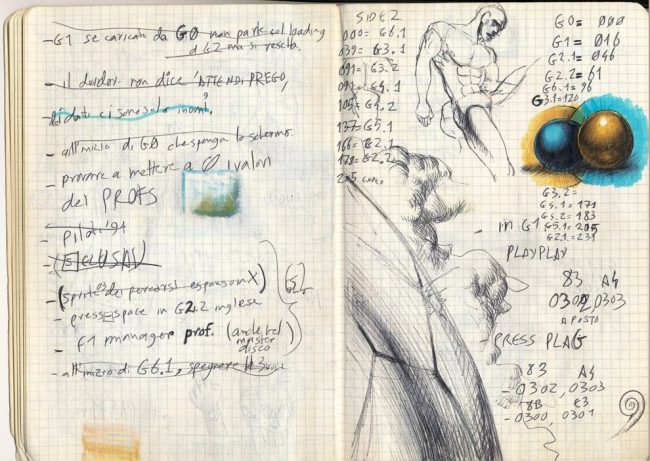 - G1 se caricato da G0 non parte col loading
di G2 ma si resetta.
- il dordor. non dice 'ATTENDI PREGO,
dati ci sono solo i nomi?
- all'inizio di G0 che spenga lo schermo.
- provare a mettere a 0 i valori
del PROFS
- Piloti '94
- (sprite dei percorsi espansion X)
- press space in G2.2 inglese
- F1 manager prof. (anche nel
master
disco)
- all'inizio di G6.1, spegnere
SIDE 2
000= G6.1
039= G3.1
091= G3.2
092= G4.1
105= G4.2
137= G5.1
166= G2.1
179= G2.2
205
G0= 000
G1= 016
G2.1= 046
G2.2= 61
G6.1= 96
G3.1=120
G3.2=
G4.1= 171
G4.2= 183
G5.1= 205
G2.1= 231
- in G1
PLAYPLAY
83 A4
0302, 0303
A POSTO
- PRESS PLAG
83 A4
- 0302, 0303
8B E3
- 0300, 0301